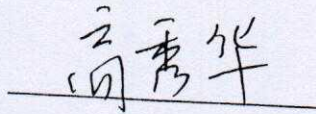 高秀华